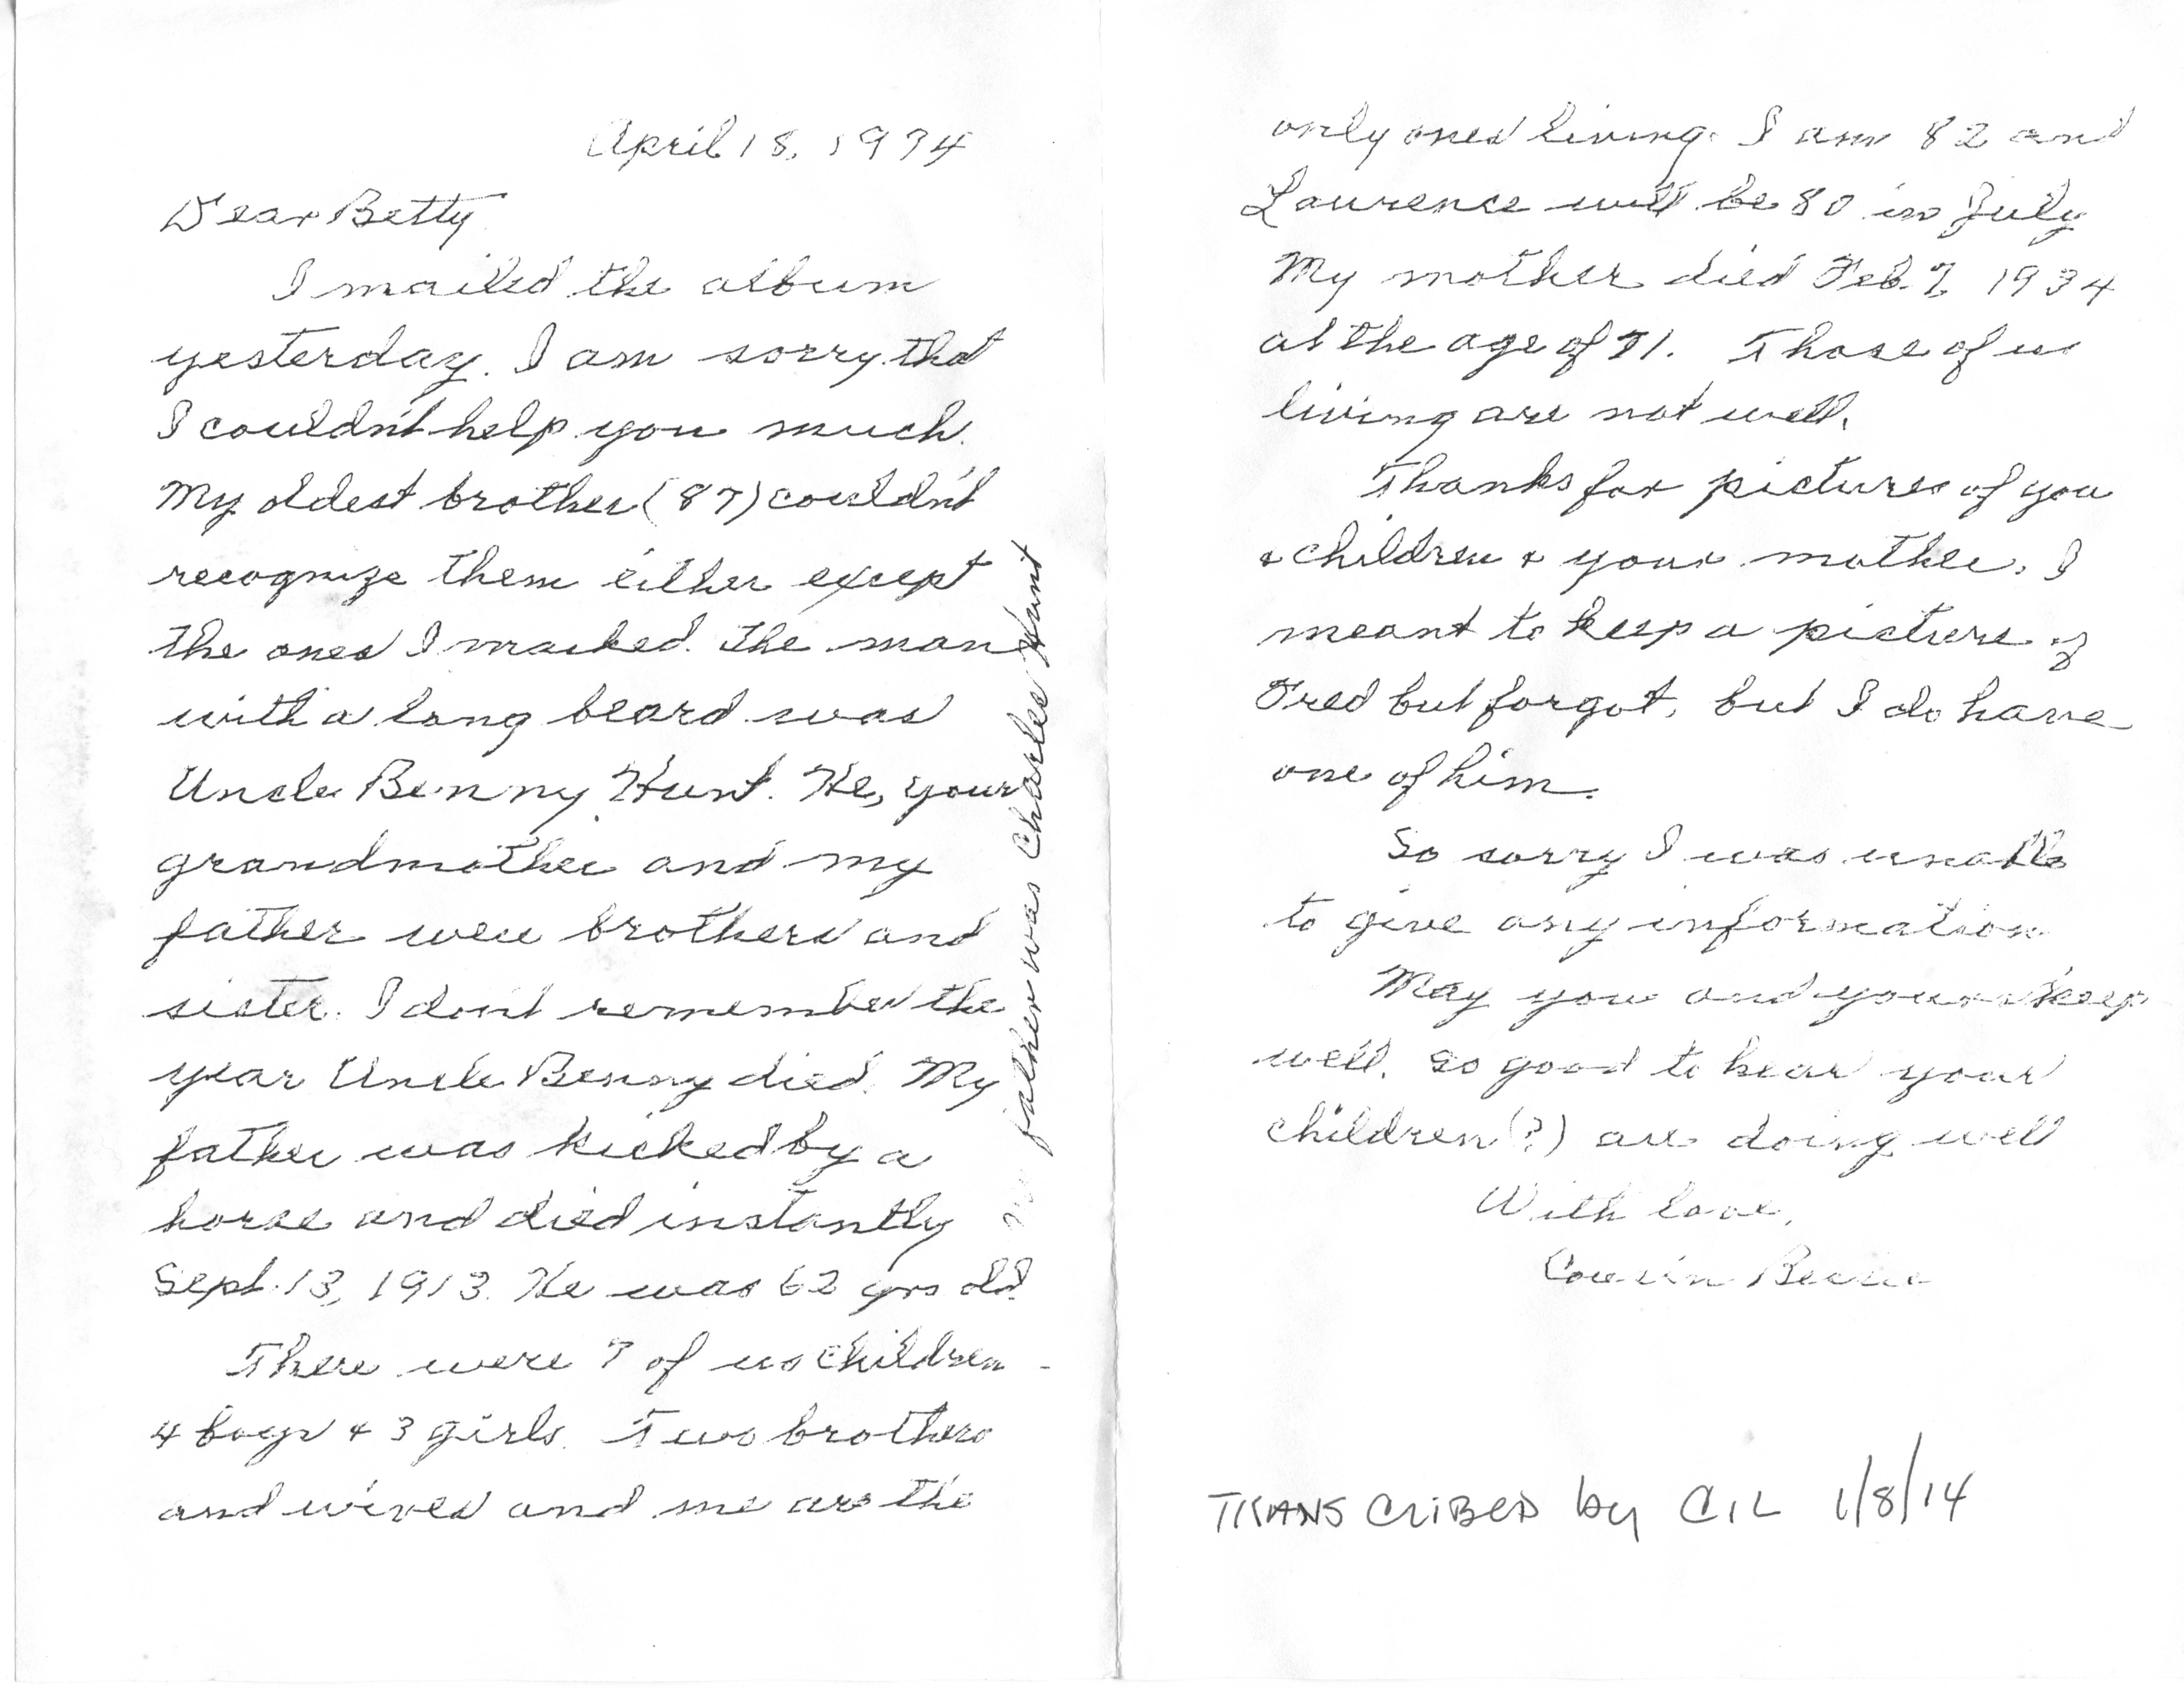 April 18, 1974
Dear Betty
I mailed the album
yesterday. I am sorry that
I couldn't help you much.
My oldest brother (87) couldn't
recognize them either except
the ones I marked. The man
with a long beard was
Uncle Benny Hunt. He, your
grandmother and my
father were brothers and
sister. I don't remember the
year Uncle Benny died. My
father was kicked by a
horse and died instantly
Sept. 13, 1913. He was 62 yrs old.
There were 7 of us children -
4 boys & 3 girls. Two brothers
and wives and me are the
My father was Charles Hunt
only ones living. I am 82 and
Laurence will be 80 in July
My mother died Feb. 7, 1934
at the age of 71. Those of us
living are not well.
Thanks for pictures of you
& children & your mother. I
meant to keep a picture of
Fred but forgot, but I do have
one of him.
So sorry I was unable
to give any information
May you and yours keep
well. So good to hear your
children (?) are doing well
With love,
Cousin
TRANSCRIBED by CIL 1/8/14